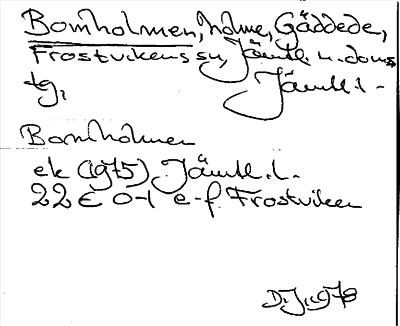 Bomholmen, holme, Gäddede,
Frostvikens sn, Jämtl. n. doms.
tg, Jämtl. l.
Bomholmen
ek (1975) Jämtl. l.
22 E 0-1 e-f Frostviken
D.J. 1978